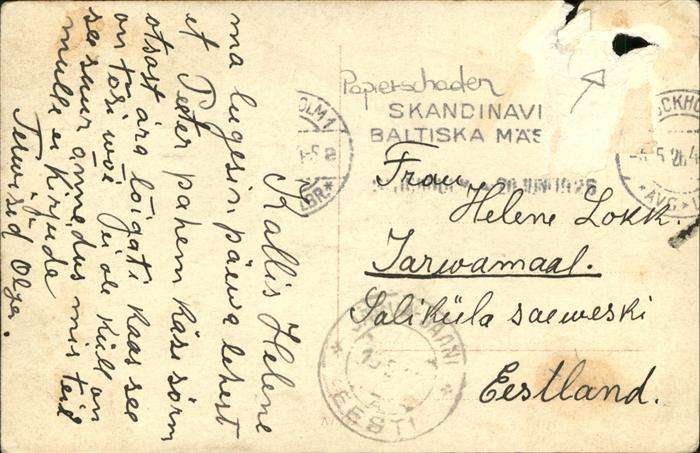 Kallis Helene
ma lugesin päewa lehest
et Peeter pahem käsi sõrm
otsast ära lõigati kaas see
on tõsi wõi ei ole küll on
see suur õnnedus mis teil
mulle ei kirjuda
Terwised Olga.
Paperschaden
SKANDINAVI
BALTISKA MÄS
Frau
Helene Lokk.
Jarwamaal.
Saliküla saeweski
Eestland.
EESTI